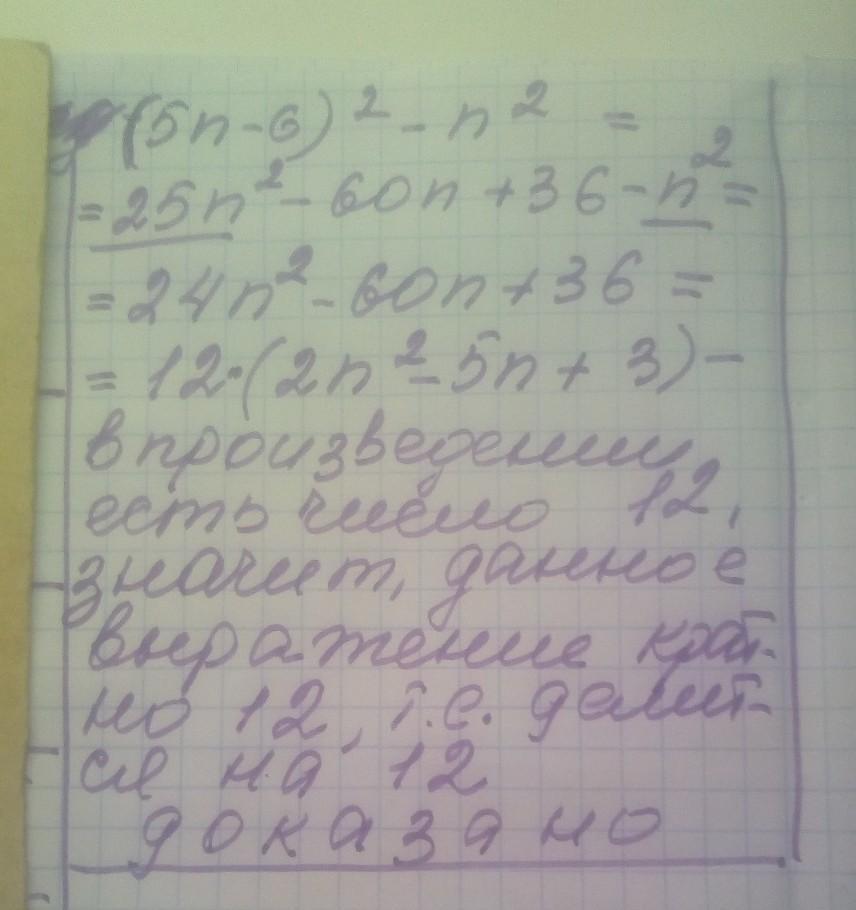 (5n-6)² - n² =
= 25n² - 60n + 36 - n² =
= 24n² - 60n + 36 =
= 12·(2n² - 5n + 3) –
в произведении
есть число 12,
значит, данное
выражение крат-
но 12, т.е. делит-
ся на 12
доказано